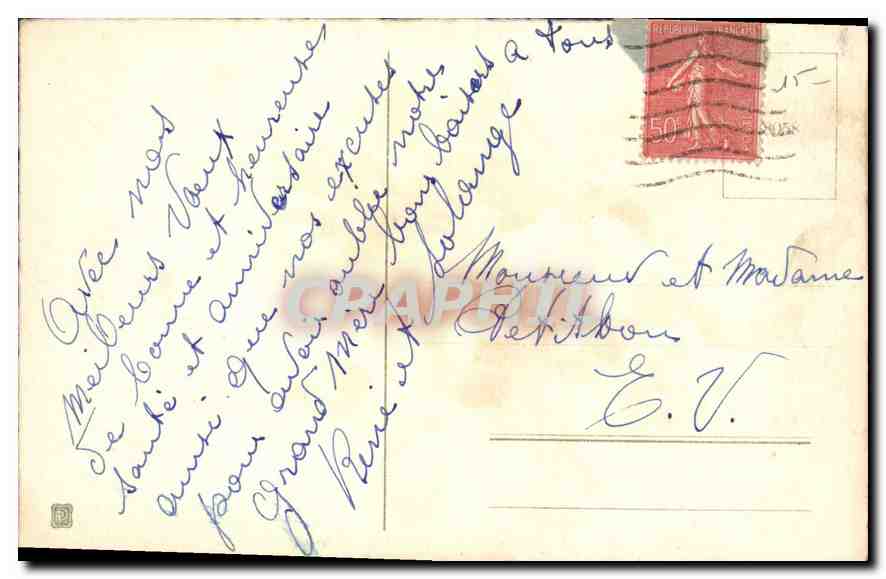 Avec nos
Meilleurs Vœux
de bonne et heureuse
santé et anniversaire
ainsi que nos excuses
pour avoir oublié notre
Grand Mère bons baisers a tous
René et Solange
REPUBLIQUE FRANÇAISE
50
15-
Monsieur et Madame
Petitbon
E. V.
CRAPHIL